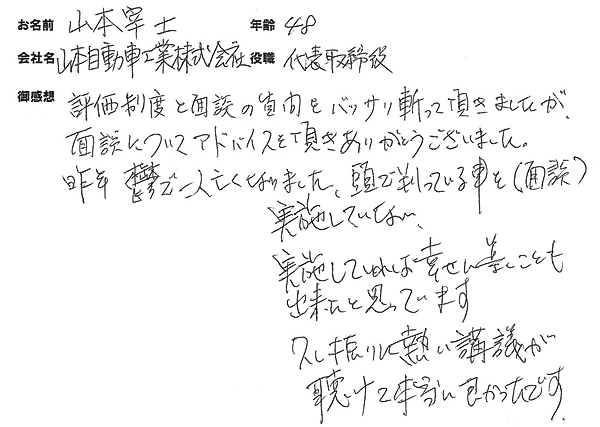 お名前 山本宰士 年齢 48
会社名 山本自動車工業株式会社 役職 代表取締役
御感想 評価制度と面談の質問をバッサリ斬って頂きましたが、
面談についてアドバイスを頂きありがとうございました。
昨年 鬱で一人亡くなりました、頭で判っている事を(面談)
実施していない、
実施していれば幸せに導くことも
出来たと思っています
久し振りに熱い講議が
聴けて本当に良かったです。